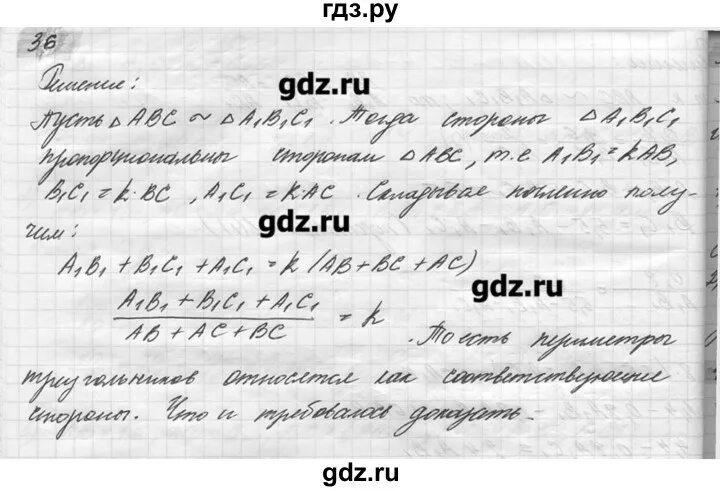 гдз.ру
36
Решение:
gdz.ru
Пусть △ABC ~ △A₁B₁C₁. Тогда стороны △A₁B₁C₁
пропорциональны сторонам △ABC, т.е A₁B₁=kAB,
B₁C₁=k·BC, A₁C₁=k·AC. Складывая почленно полу-
чим:
gdz.ru
A₁B₁+B₁C₁+A₁C₁=k(AB+BC+AC)
gdz.ru
A₁B₁+B₁C₁+A₁C₁
AB+AC+BC
= k
. То есть периметры
треугольников относятся как соответствующие
стороны. Что и требовалось доказать.
gdz.ru
gdz.ru